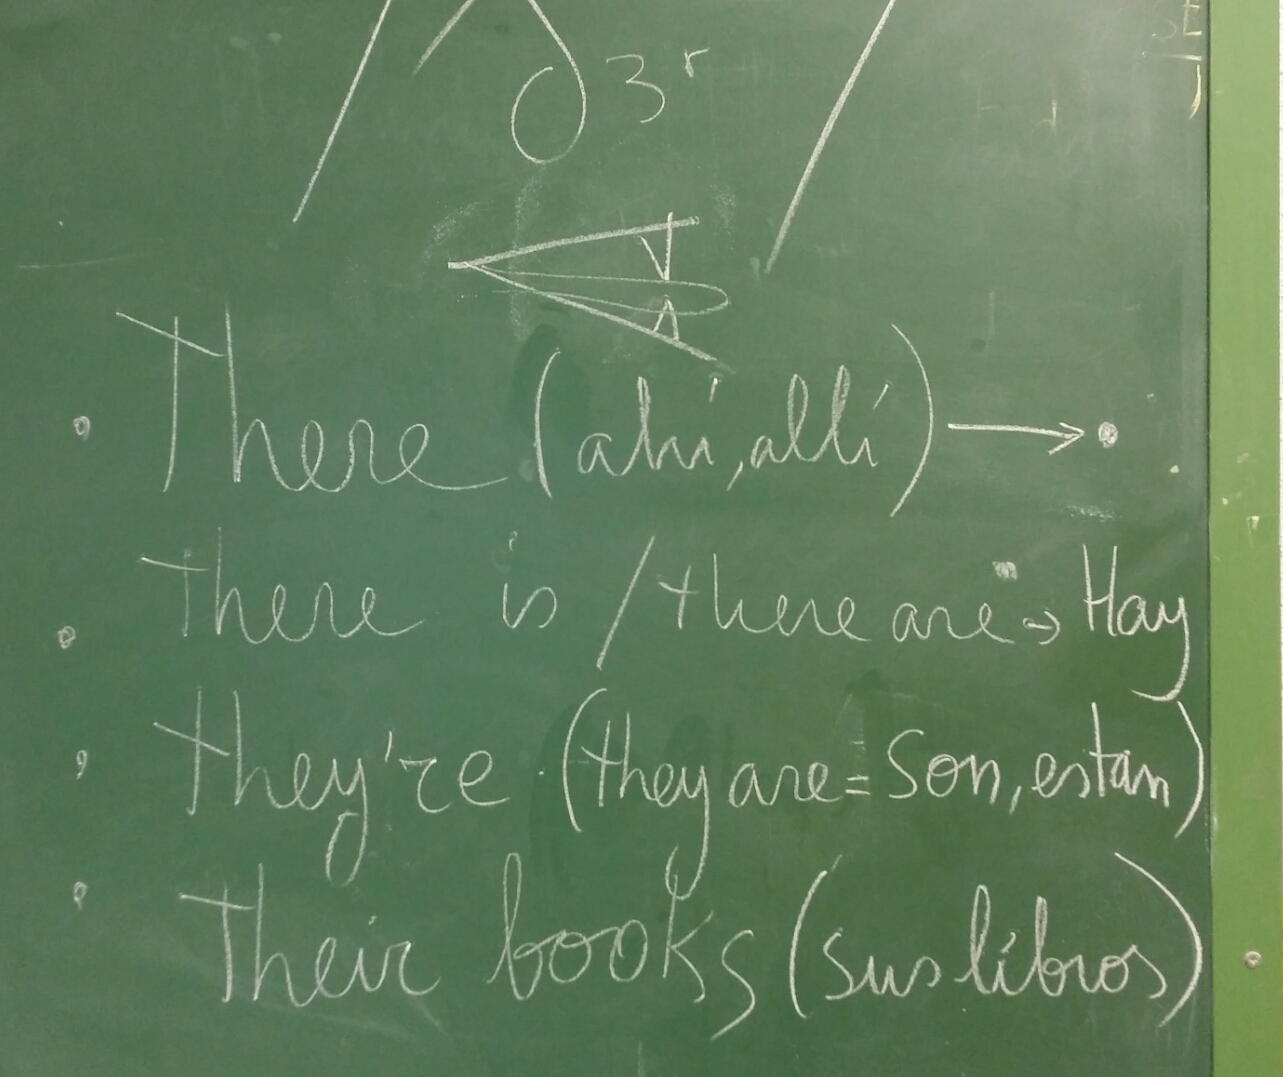 3r
• There (ahí, allí) → •
• There is / there are → Hay
• They're (they are = Son, estan)
• Their books (sus libros)